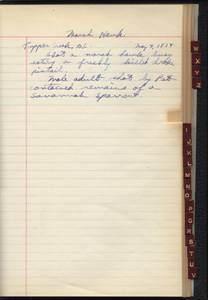 Marsh Hawk
Tupper Creek, B.C. May 7, 1938
Shot a marsh hawk busy
eating a freshly killed drake
pintail.
Male adult shot by Pat
contained remains of a
savannah sparrow.
W X Y Z
I J K L M N O P Q R S T U V